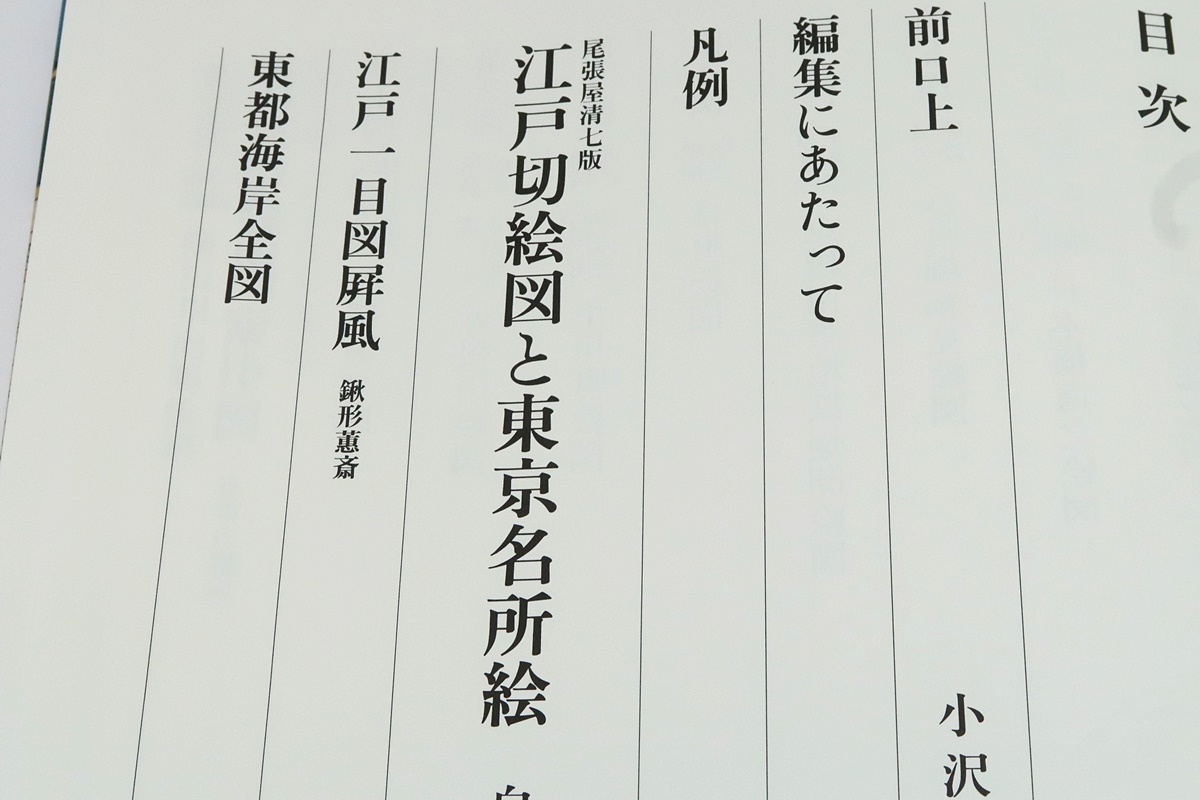 目次
前口上 小沢
編集にあたって
凡例
尾張屋清七版
江戸切絵図と東京名所絵
江戸一目図屛風 鍬形蕙斎
東都海岸全図